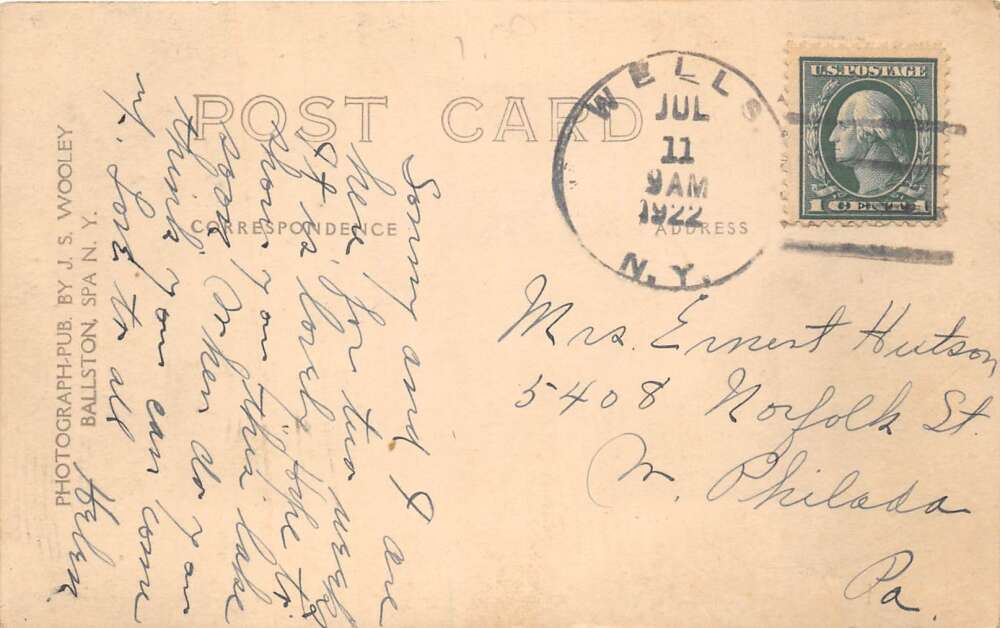 POST CARD
CORRESPONDENCE
ADDRESS
PHOTOGRAPH-PUB. BY J. S. WOOLEY
BALLSTON, SPA N. Y.
WELLS
JUL
11
9AM
1922
N.Y.
U.S. POSTAGE
1 CENT 1
Mrs. Ernest Hutson
5408 Norfolk St.
W. Philada
Pa.
Sonny and I are
here for two weeks
It is lovely here to
show you this lake
spot. When do you
think you can come
up. Love to all
Helen.